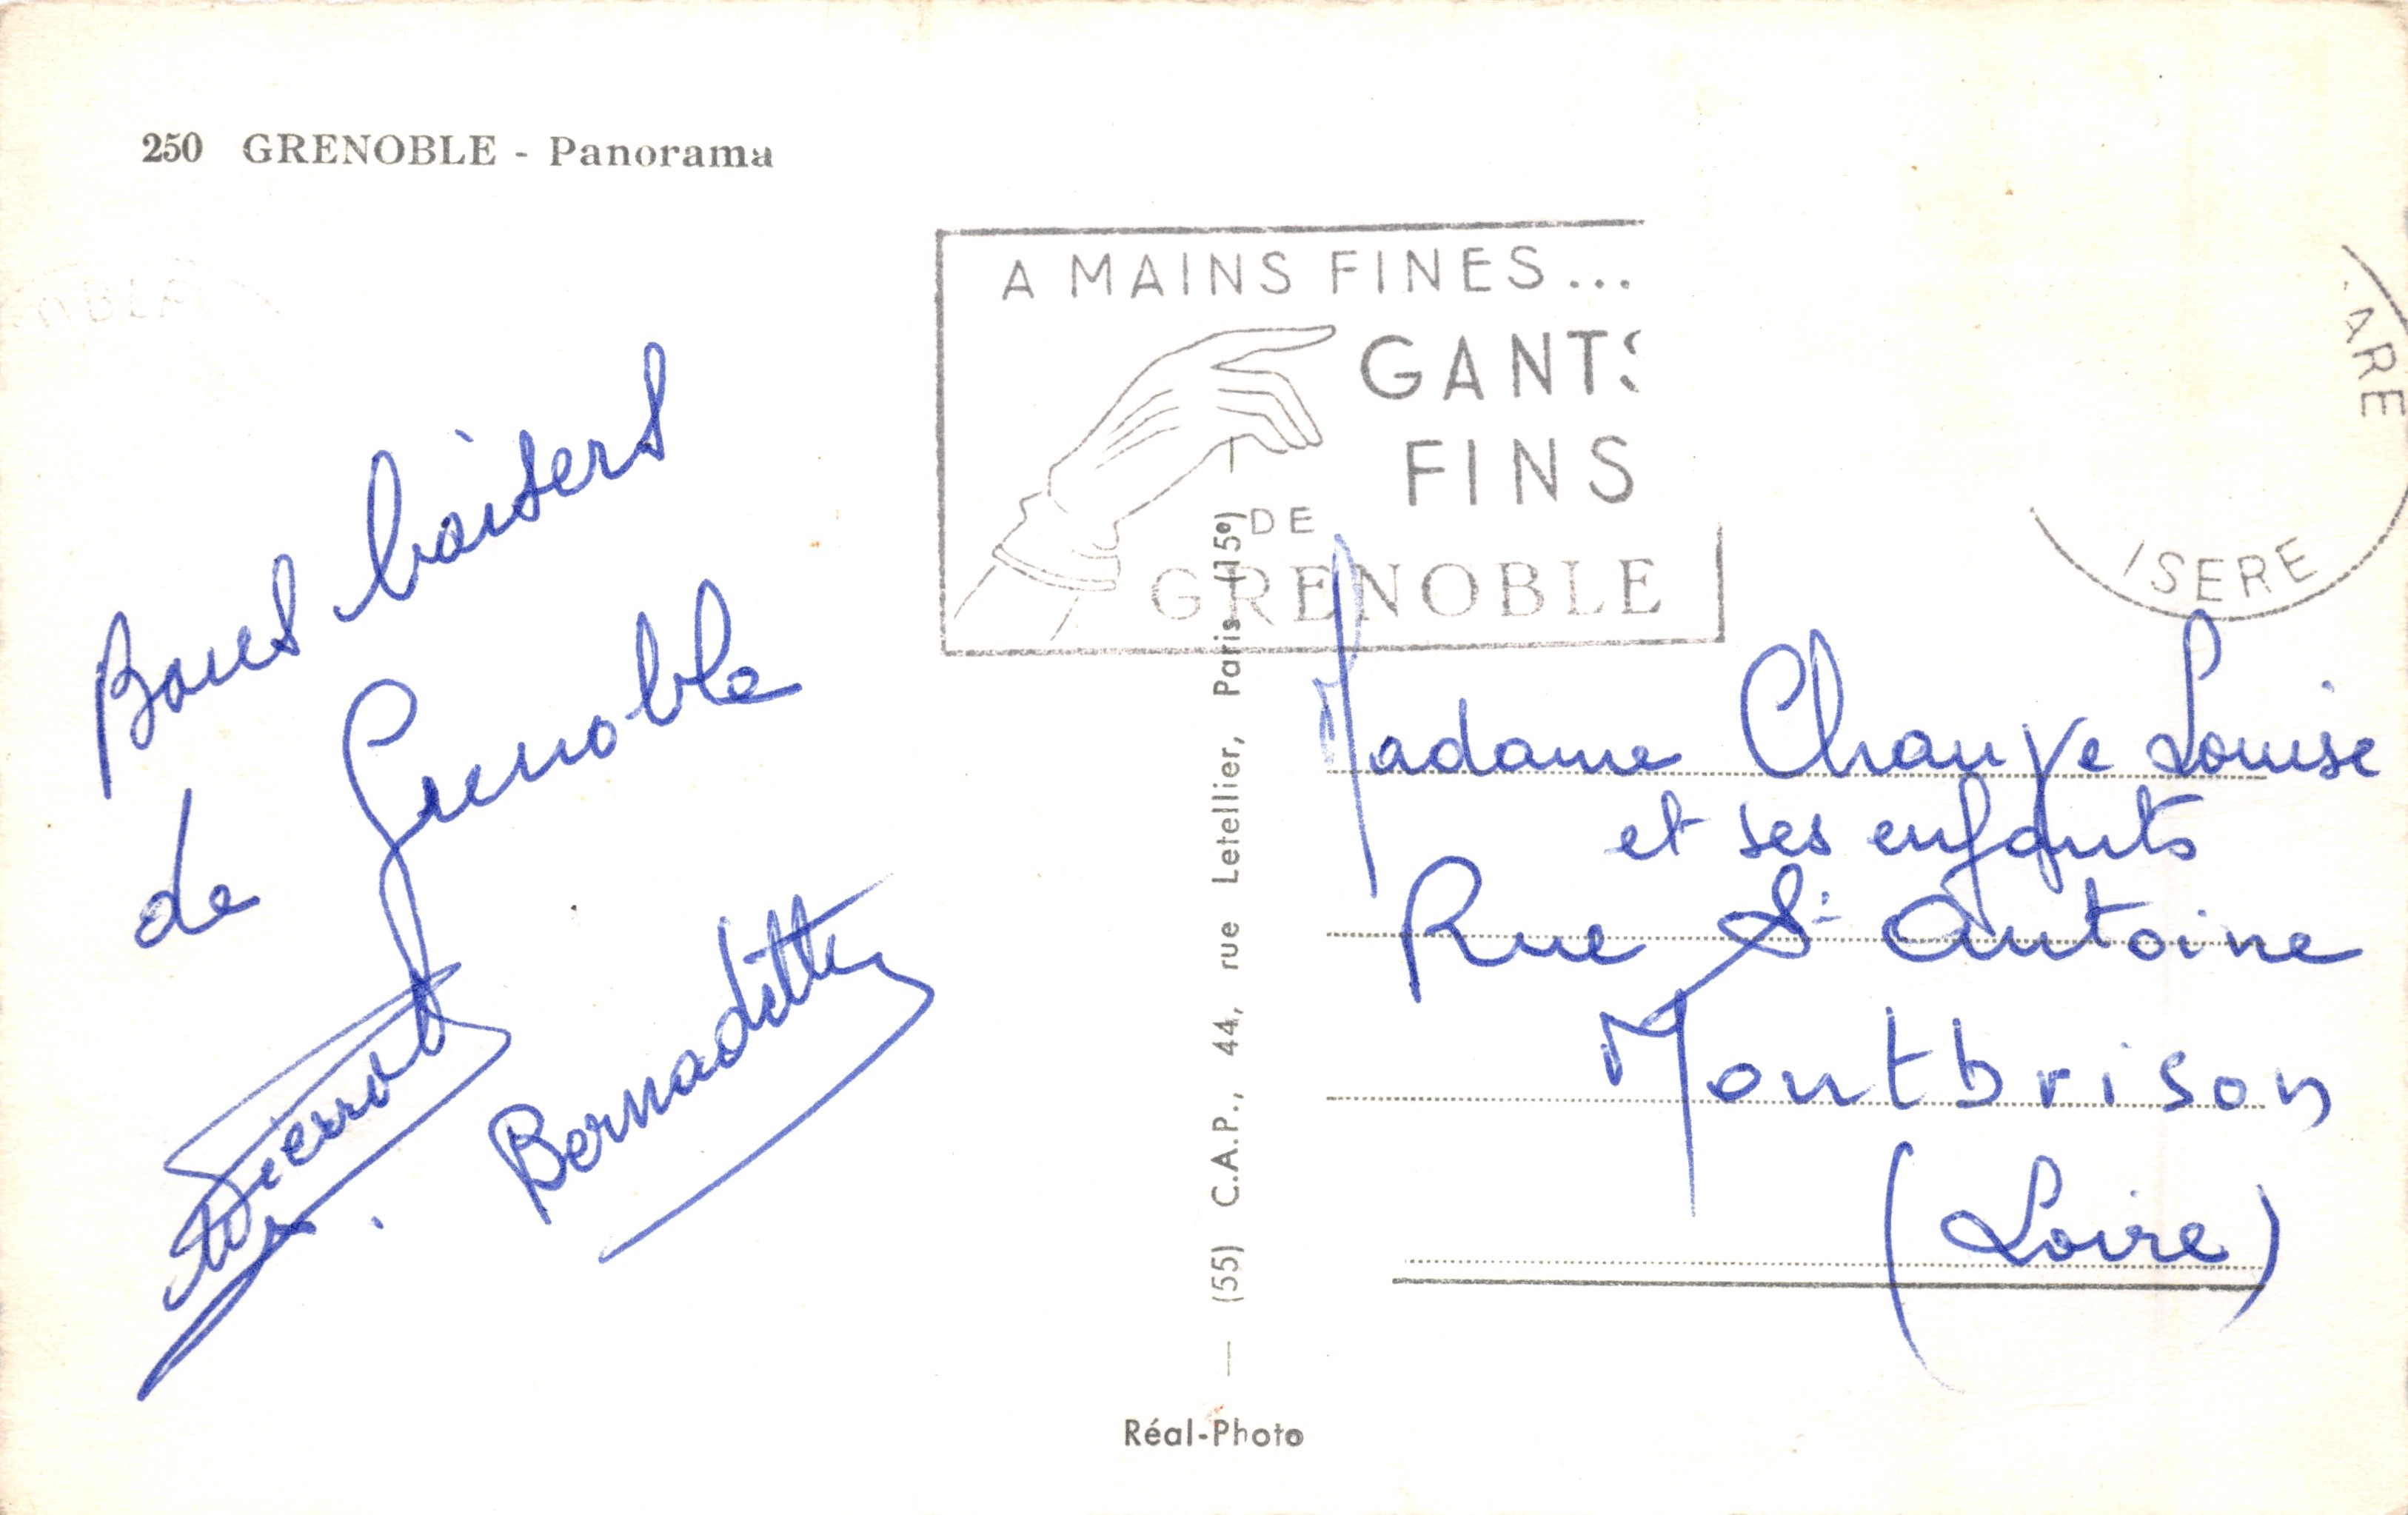 250 GRENOBLE - Panorama
A MAINS FINES...
GANTS
FINS
DE
GRENOBLE
ARE
ISERE
Bons baisers
de Grenoble
Pierrot
Bernadette
(55) C.A.P., 44, rue Letellier, Paris (15e)
Réal-Photo
Madame Chauve Louise
et ses enfants
Rue St Antoine
Montbrison
(Loire)